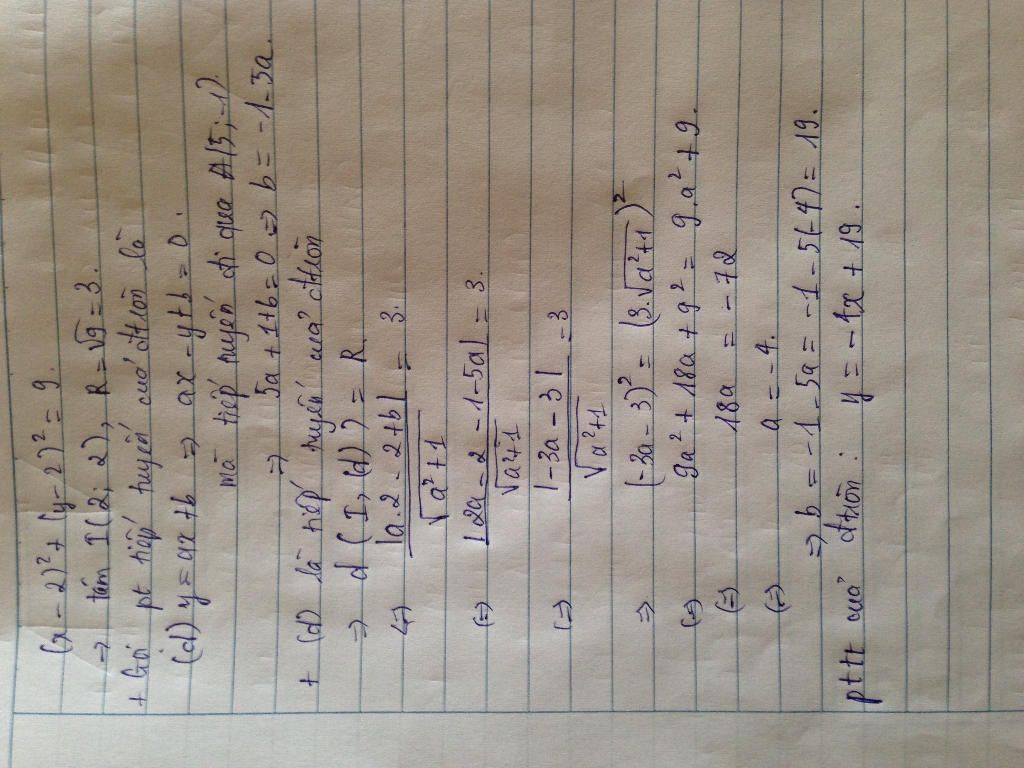 (x - 2)² + (y - 2)² = 9.
→ tâm I(2; 2), R = √9 = 3.
+ Gỏi pt tiếp tuyến cuả đtròn là
(d) y = ax + b => ax - y + b = 0.
mà tiếp tuyến đi qua A(5; -1).
=> 5a + 1 + b = 0 => b = -1 - 5a.
+ (d) là tiếp tuyến cuả đtròn
=> d(I, (d)) = R.
<=> |a.2 - 2 + b| / √a² + 1 = 3.
(=) |2a - 2 - 1 - 5a| / √a² + 1 = 3.
(=) |-3a - 3| / √a² + 1 = 3
=> (-3a - 3)² = (3.√a² + 1)²
(=) 9a² + 18a + 9² = 9.a² + 9.
(=) 18a = -72
(=) a = -4.
=> b = -1 - 5a = -1 - 5(-4) = 19.
pttt cuả đtròn : y = -4x + 19.